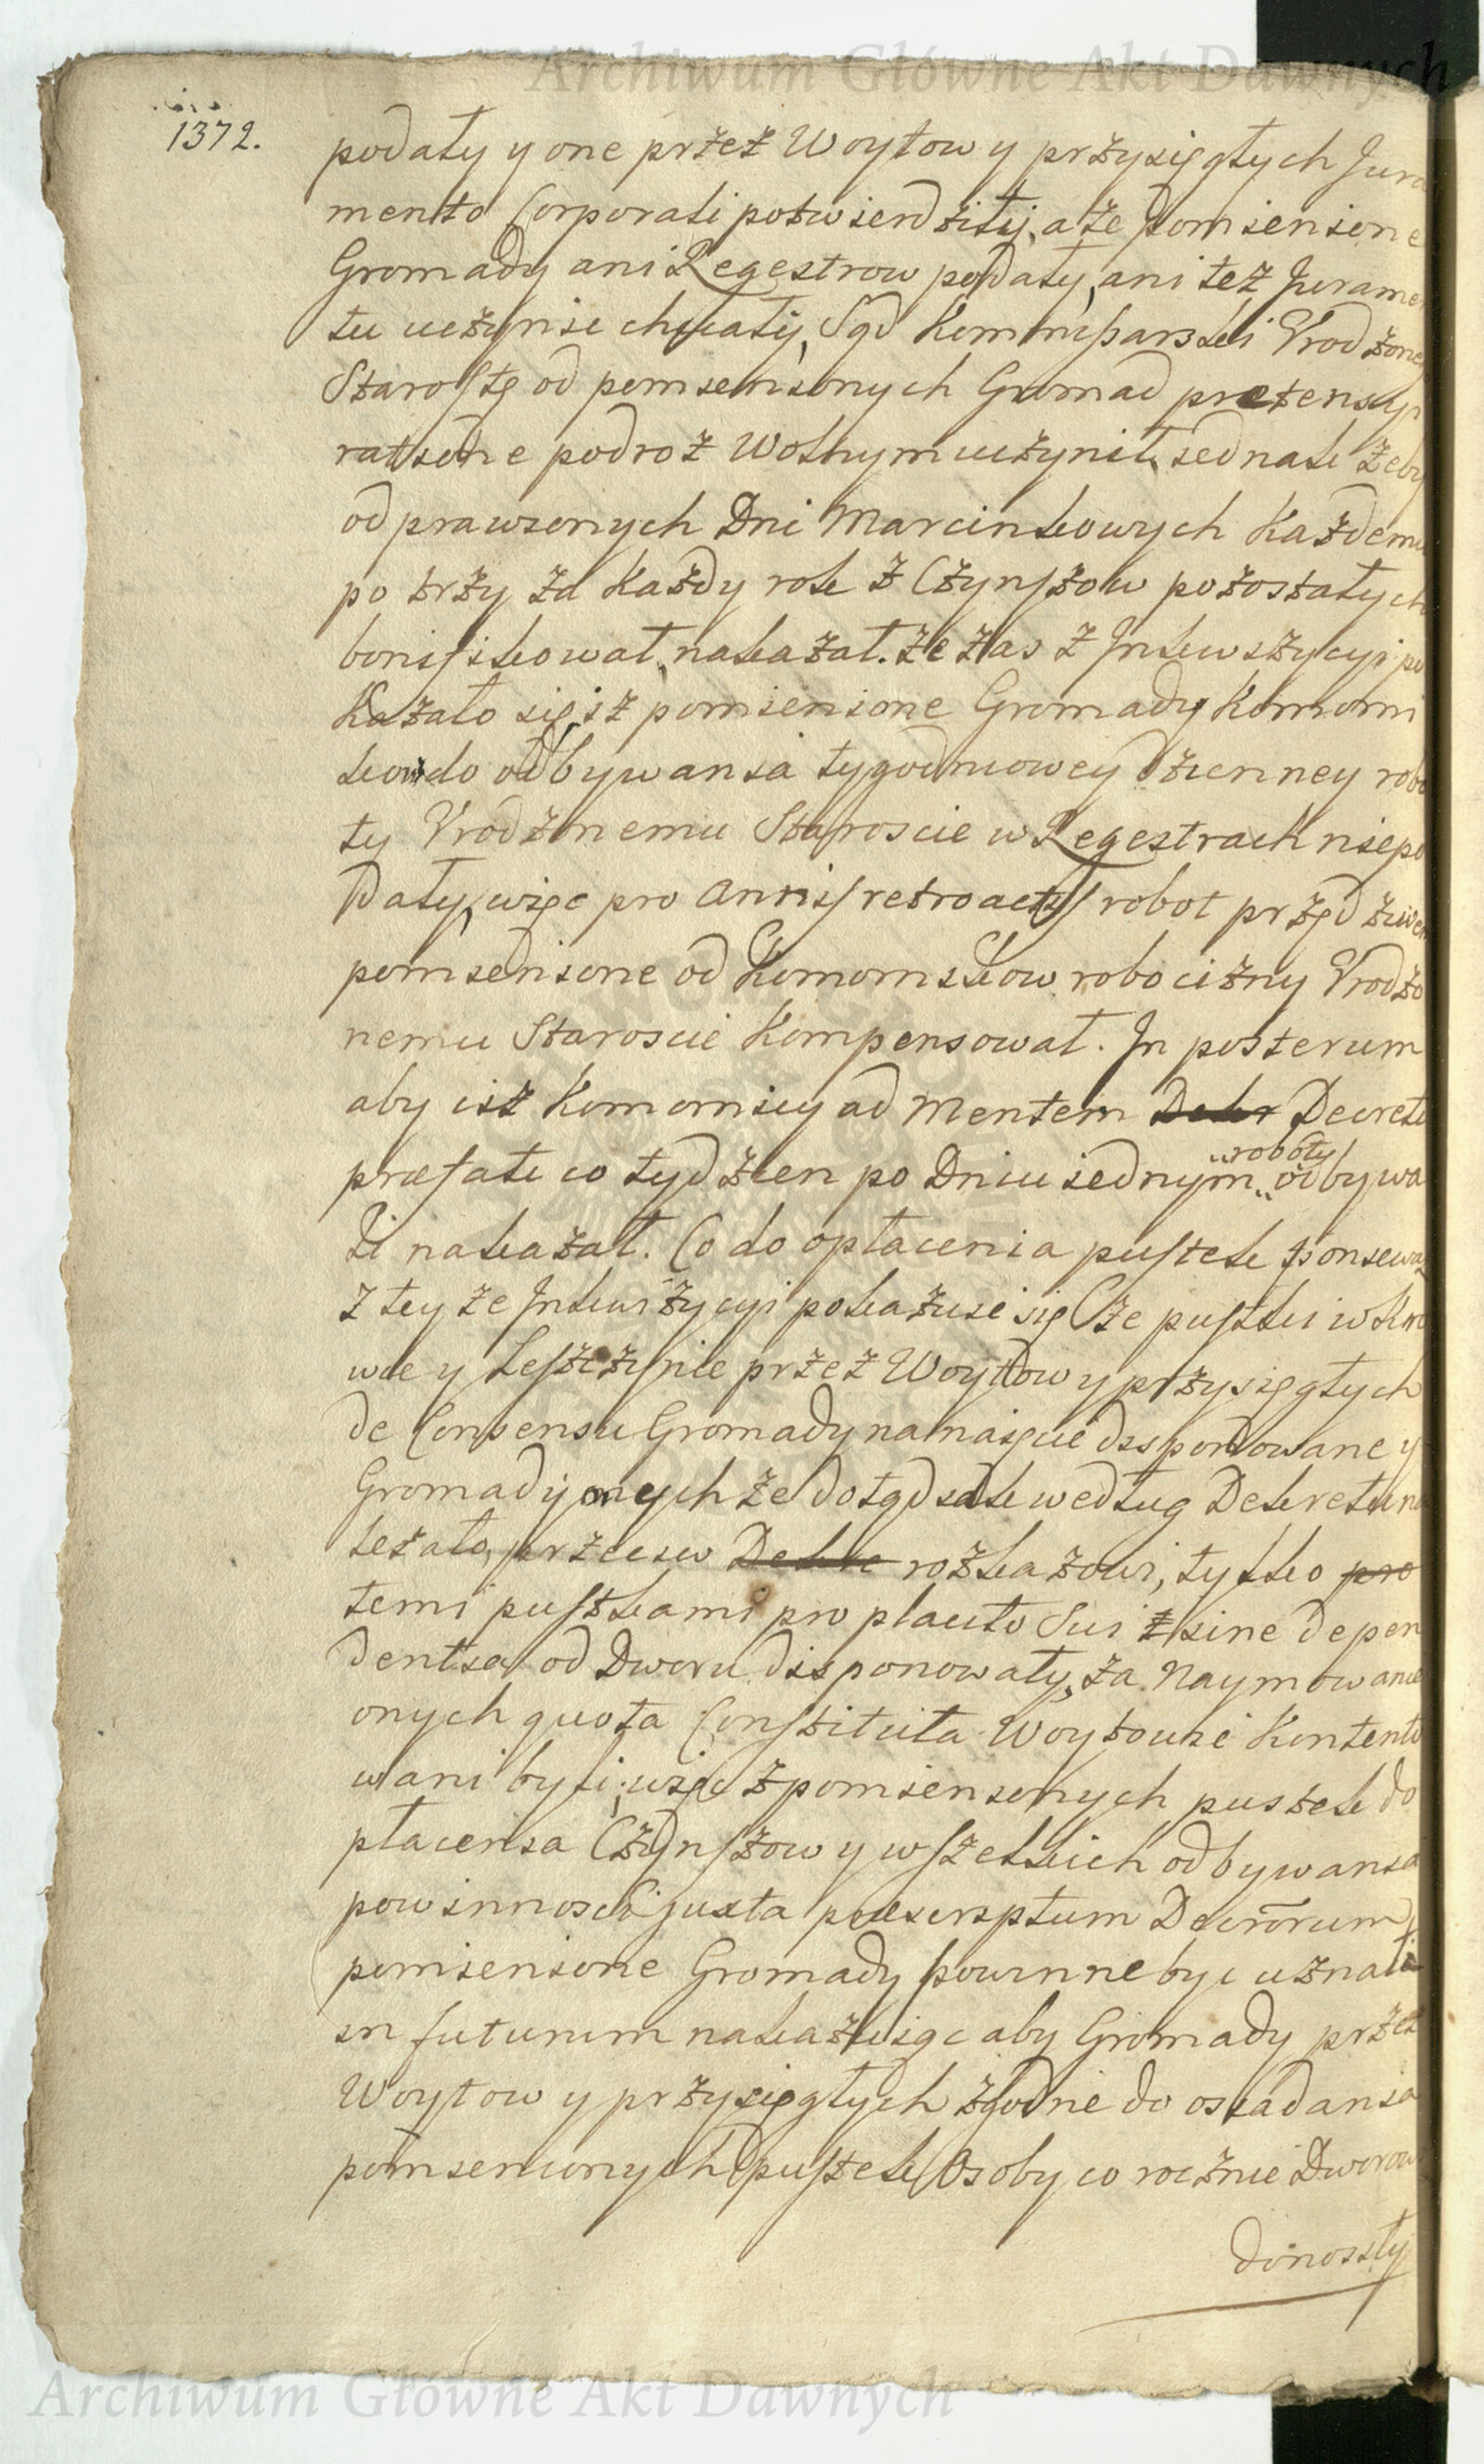 Archiwum Główne Akt Dawnych
1372.
podały y one przez Woytow y przysięgłych Jura
mento Corporali potwierdziły, a że pomienione
Gromady ani Regestrow podały, ani też Jurame
tu uczynić chciały, Sąd Kommissarski Urodzone
Starostę od pomienionych Gromad pretensyi
ratione podroż wolnym uczynił, jednak żeby
odprawionych Dni Marcinkowych Każdemu
po trzy za Każdy rok z Czynszow pozostałych
bonifikował, nakazał. Że zas z Inkwizycyi po
Kazało się, iż pomienione Gromady Komorni
kow do odbywania tygodniowey dzienney robo
ty Urodzonemu Staroscie w Regestrach niepo
dały, więc pro Annis retroactis robot przed żniwem
pomienione od Komornikow robocizny Urodzo
nemu Staroscie Kompensował. In posterum
aby ciż Komornicy ad Mentem Dekr Decreti
præfati co tydzien po Dniu jednym odbywa
roboty
li nakazał. Co do opłacenia pustek ponieważ
z teyże Inkwizycyi pokazuie się że pustki w Kro
wce y Leszczynie przez Woytow y przysięgłych
de Consensu Gromady na naięcie disponowane y
Gromady onych że dotąd jak według Dekretu na
leżało, przeciw Dekre rozkazowi, tylko pro
temi pustkami pro placito Sui z sine depen
dentia od Dworu disponowały, za Naymowanie
onych quota Constituta Woytowie Kontento
wani byli, więc z pomienionych pustek do
płacenia Czynszow y wszelkich odbywania
powinnosci juxta præscriptum Decrorum
pomienione Gromady powinne być uznali
in futurum nakazuiąc aby Gromady przez
Woytow y przysięgłych zgodnie do osiadania
pomienionych pustek Osoby co rocznie Dworow
donosiły
Archiwum Główne Akt Dawnych